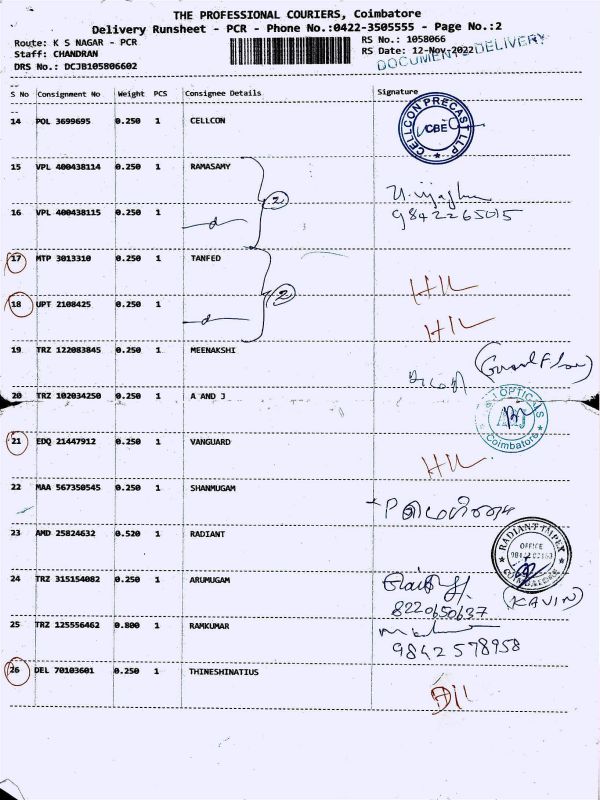 THE PROFESSIONAL COURIERS, Coimbatore
Delivery Runsheet - PCR - Phone No.:0422-3505555 - Page No.:2
Route: K S NAGAR - PCR
RS No.: 1058066
Staff: CHANDRAN
RS Date: 12-Nov-2022
DRS No.: DCJB105806602
DOCUMENTS DELIVERY
S No Consignment No Weight PCS Consignee Details Signature
14 POL 3699695 0.250 1 CELLCON
CELLCON PRECAST LLP
CBE
15 VPL 400438114 0.250 1 RAMASAMY
2
16 VPL 400438115 0.250 1
9842265015
17 MTP 3013310 0.250 1 TANFED
2
18 UPT 2108425 0.250 1
19 TRZ 122083845 0.250 1 MEENAKSHI
20 TRZ 102034250 0.250 1 A AND J
OPTICALS
Coimbatore
21 EDQ 21447912 0.250 1 VANGUARD
22 MAA 567350545 0.250 1 SHANMUGAM
23 AMD 25824632 0.520 1 RADIANT
RADIANT IMPEX
OFFICE
COIMBATORE
(KAVIN)
24 TRZ 315154082 0.250 1 ARUMUGAM
8220650637
25 TRZ 125556462 0.800 1 RAMKUMAR
9842578958
26 DEL 70103601 0.250 1 THINESHINATIUS